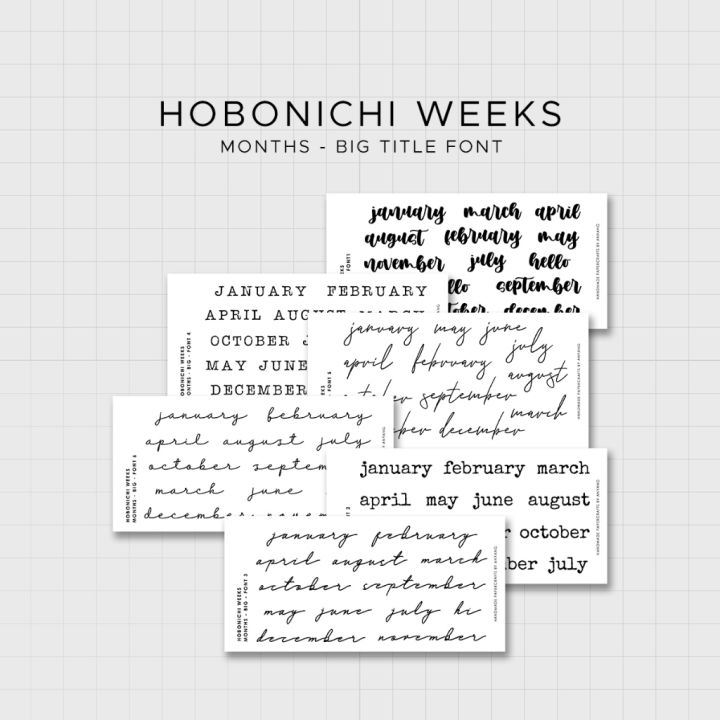 HOBONICHI WEEKS
MONTHS - BIG TITLE FONT
january march april
august february may
november july hello
september
december
HANDMADE PAPERCRAFTS BY ANYANG
JANUARY FEBRUARY
APRIL AUGUST MARCH
OCTOBER
MAY JUNE
DECEMBER
HOBONICHI WEEKS
MONTHS - BIG - FONT 4
january may june
july
april february
august
september
march
december
HANDMADE PAPERCRAFTS BY ANYANG
january february
april august july
october
march june
december
HOBONICHI WEEKS
MONTHS - BIG - FONT 6
january february march
april may june august
october
july
HANDMADE PAPERCRAFTS BY ANYANG
january february
april august march
october september
may june july hi
december november
HOBONICHI WEEKS
MONTHS - BIG - FONT 3
HANDMADE PAPERCRAFTS BY ANYANG